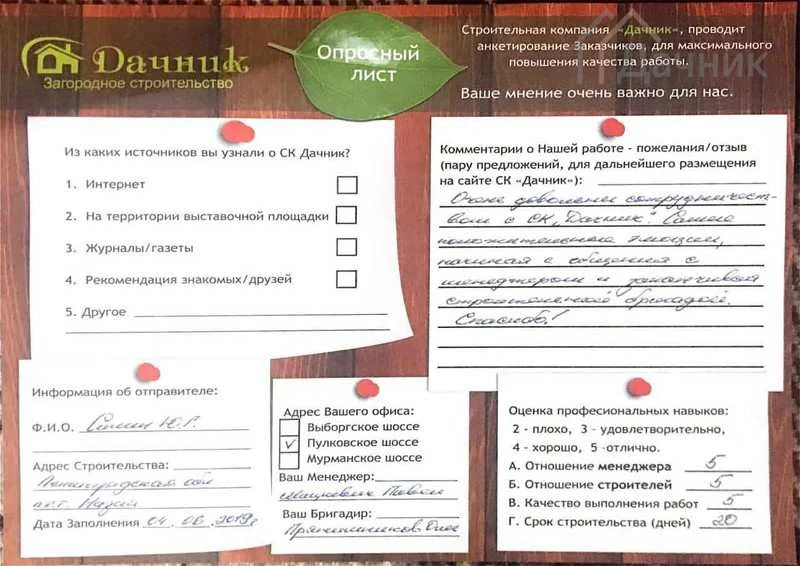 Дачник
Загородное строительство
Опросный
лист
Строительная компания «Дачник», проводит
анкетирование Заказчиков, для максимального
повышения качества работы.
Ваше мнение очень важно для нас.
Дачник
Из каких источников вы узнали о СК Дачник?
1. Интернет
2. На территории выставочной площадки
3. Журналы/газеты
4. Рекомендация знакомых/друзей
5. Другое
Комментарии о Нашей работе - пожелания/отзыв
(пару предложений, для дальнейшего размещения
на сайте СК «Дачник»):
Очень довольны сотрудничест-
вом с СК „Дачник". Самые
положительные эмоции,
начиная с общения с
менеджером и заканчивая
строительной бригадой.
Спасибо!
Информация об отправителе:
Ф.И.О. Ю.Г.
Адрес Строительства:
Ленинградская обл
пгт. Назия
Дата Заполнения 04.06.2019г
Адрес Вашего офиса:
Выборгское шоссе
✓ Пулковское шоссе
Мурманское шоссе
Ваш Менеджер:
Павел
Ваш Бригадир:
Прянишников Олег
Оценка професиональных навыков:
2 - плохо, 3 - удовлетворительно,
4 - хорошо, 5 -отлично.
А. Отношение менеджера 5
Б. Отношение строителей 5
В. Качество выполнения работ 5
Г. Срок строительства (дней) 20